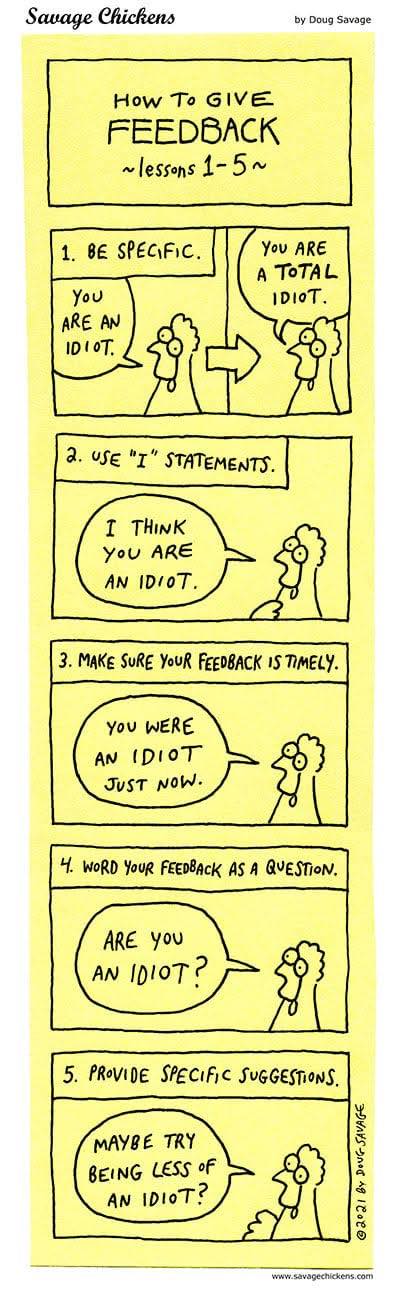 Savage Chickens
by Doug Savage
HOW TO GIVE
FEEDBACK
~lessons 1-5~
1. BE SPECIFIC.
YOU
ARE AN
IDIOT.
YOU ARE
A TOTAL
IDIOT.
2. USE "I" STATEMENTS.
I THINK
YOU ARE
AN IDIOT.
3. MAKE SURE YOUR FEEDBACK IS TIMELY.
YOU WERE
AN IDIOT
JUST NOW.
4. WORD YOUR FEEDBACK AS A QUESTION.
ARE YOU
AN IDIOT?
5. PROVIDE SPECIFIC SUGGESTIONS.
MAYBE TRY
BEING LESS OF
AN IDIOT?
©2021 BY DOUG SAVAGE
www.savagechickens.com